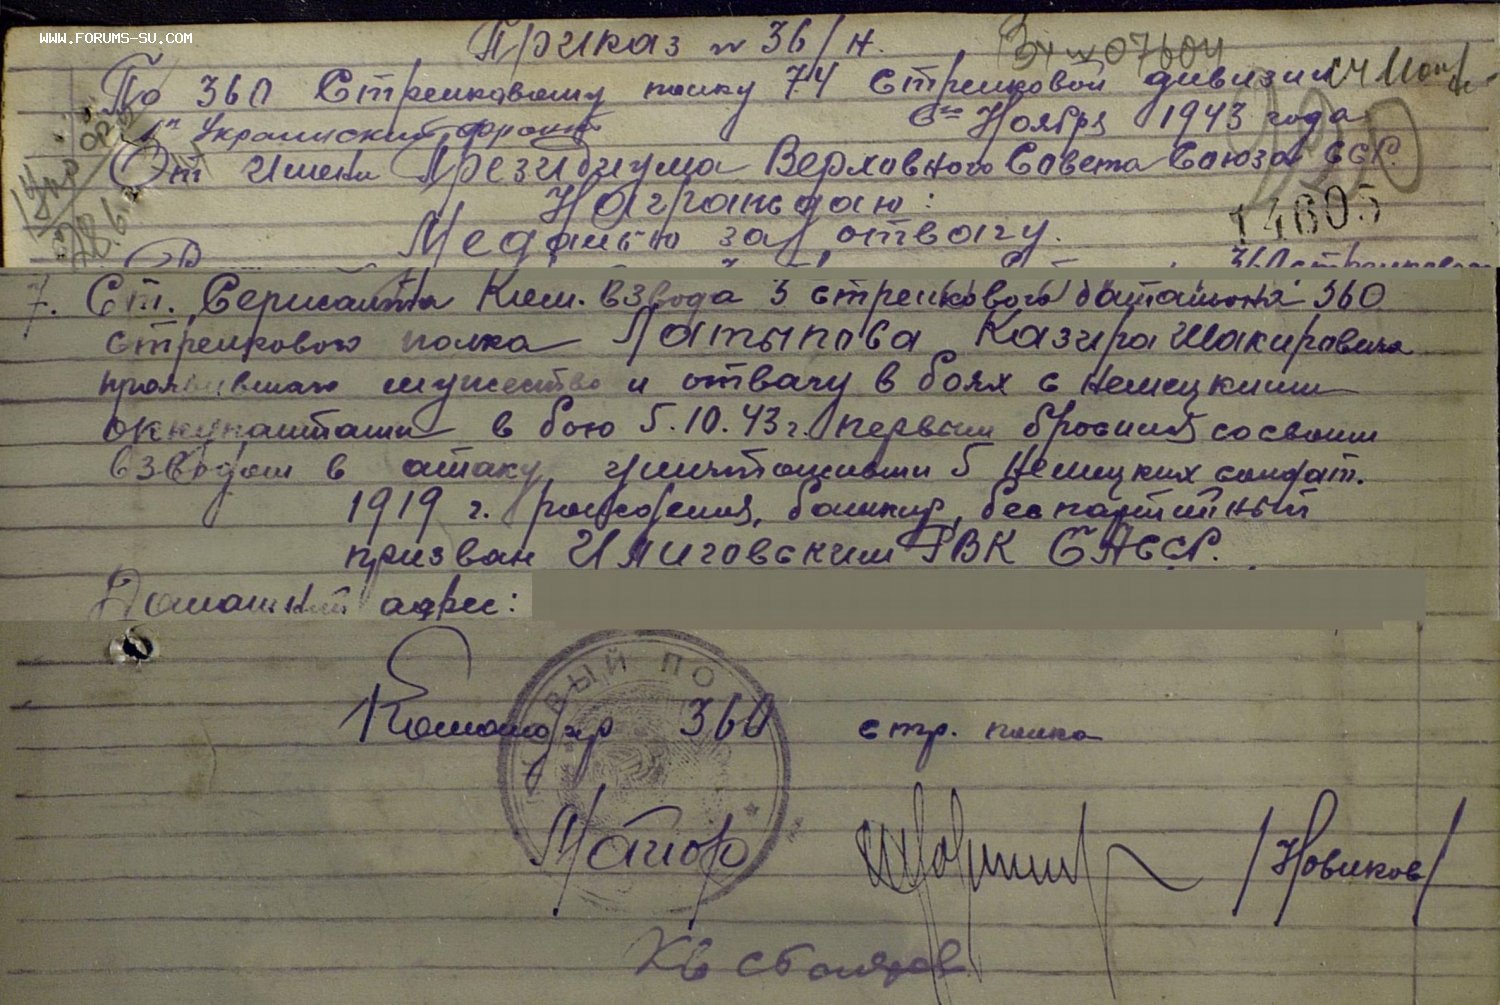 WWW.FORUMS-SU.COM
Приказ № 36/н.
По 360 Стрелковому полку 74 Стрелковой дивизии
1го Украинский фронт
6го Ноября 1943 года
От имени Президиума Верховного Совета Союза ССР.
Награждаю:
14605
Медалью за отвагу.
7. Ст. Сержанта Ком. взвода 3 стрелкового баталиона 360
стрелкового полка Латыпова Казира Шакировича
проявившего мужество и отвагу в боях с немецкими
оккупантами в бою 5.10.43 г. первым бросился со своим
взводом в атаку уничтоживши 5 немецких солдат.
1919 г. рождения, башкир, беспартийный
призван Илиговским РВК БАССР.
Домашний адрес:
ВЫЙ ПО
Командир 360 стр. полка
Майор /Новиков/